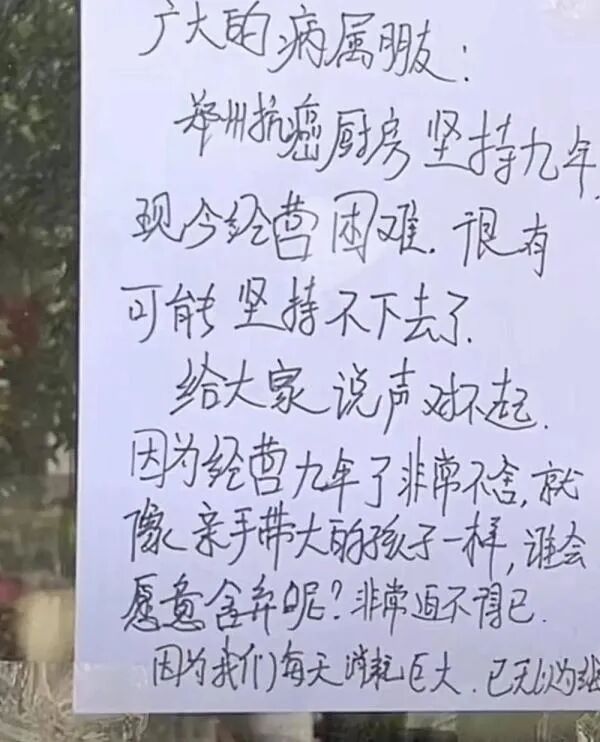 广大的病属朋友:
郑州抗癌厨房坚持九年,
现今经营困难.很有
可能坚持不下去了.
给大家说声对不起.
因为经营九年了非常不舍,就
像亲手带大的孩子一样,谁会
愿意舍弃呢?非常迫不得已.
因为我们每天消耗巨大.已无以为继